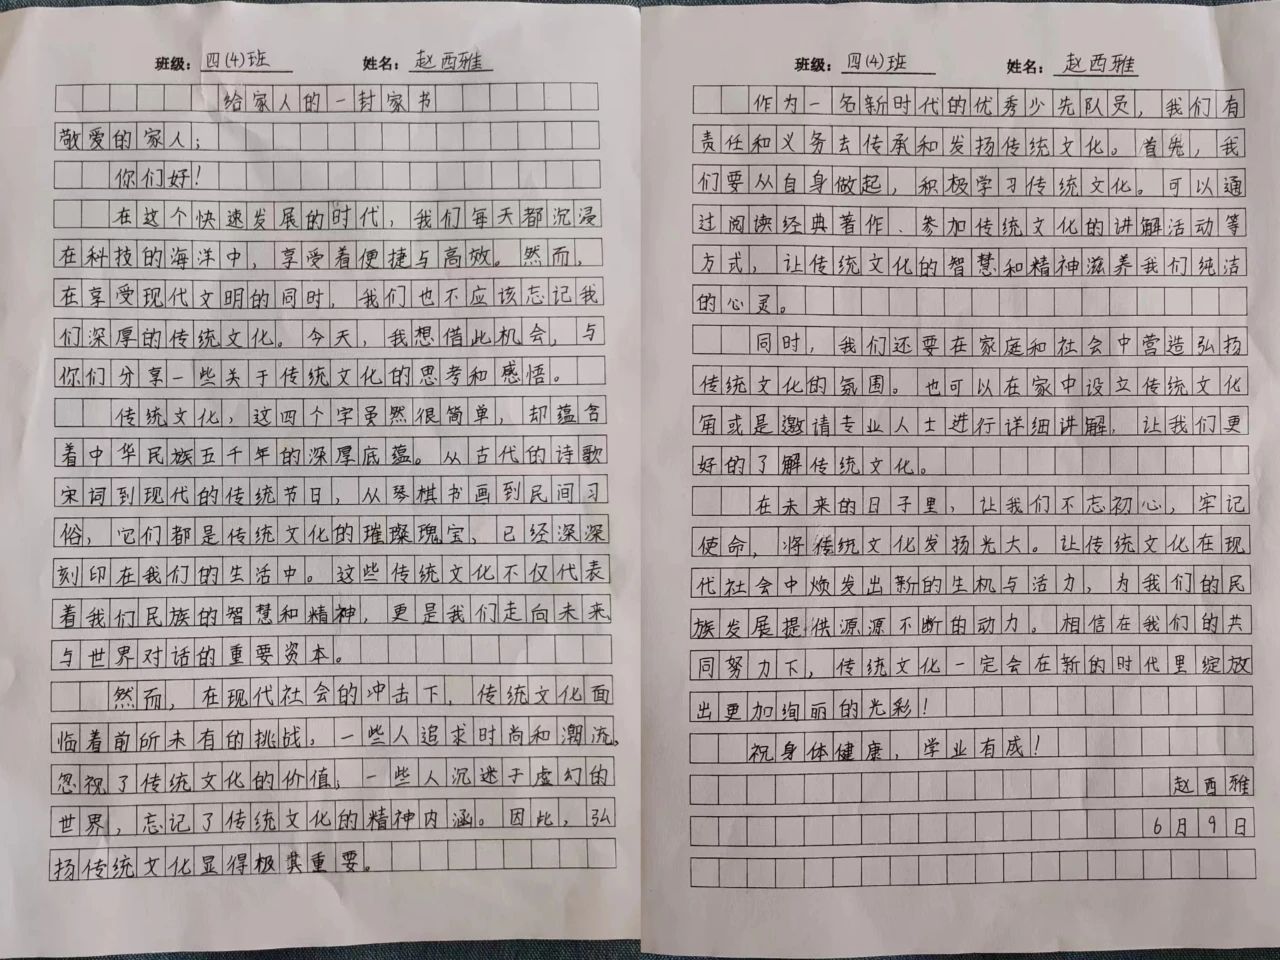 班级：四(4)班 姓名：赵西雅
给家人的一封家书
敬爱的家人；
你们好！
在这个快速发展的时代，我们每天都沉浸
在科技的海洋中，享受着便捷与高效。然而，
在享受现代文明的同时，我们也不应该忘记我
们深厚的传统文化。今天，我想借此机会，与
你们分享一些关于传统文化的思考和感悟。
传统文化，这四个字虽然很简单，却蕴含
着中华民族五千年的深厚底蕴。从古代的诗歌
宋词到现代的传统节日，从琴棋书画到民间习
俗，它们都是传统文化的璀璨瑰宝，已经深深
刻印在我们的生活中。这些传统文化不仅代表
着我们民族的智慧和精神，更是我们走向未来、
与世界对话的重要资本。
然而，在现代社会的冲击下，传统文化面
临着前所未有的挑战，一些人追求时尚和潮流，
忽视了传统文化的价值；一些人沉迷于虚幻的
世界，忘记了传统文化的精神内涵。因此，弘
扬传统文化显得极其重要。
班级：四(4)班 姓名：赵西雅
作为一名新时代的优秀少先队员，我们有
责任和义务去传承和发扬传统文化。首先，我
们要从自身做起，积极学习传统文化。可以通
过阅读经典著作、参加传统文化的讲解活动等
方式，让传统文化的智慧和精神滋养我们纯洁
的心灵。
同时，我们还要在家庭和社会中营造弘扬
传统文化的氛围。也可以在家中设立传统文化
角或是邀请专业人士进行详细讲解，让我们更
好的了解传统文化。
在未来的日子里，让我们不忘初心，牢记
使命，将传统文化发扬光大。让传统文化在现
代社会中焕发出新的生机与活力，为我们的民
族发展提供源源不断的动力。相信在我们的共
同努力下，传统文化一定会在新的时代里绽放
出更加绚丽的光彩！
祝身体健康，学业有成！
赵西雅
6月9日